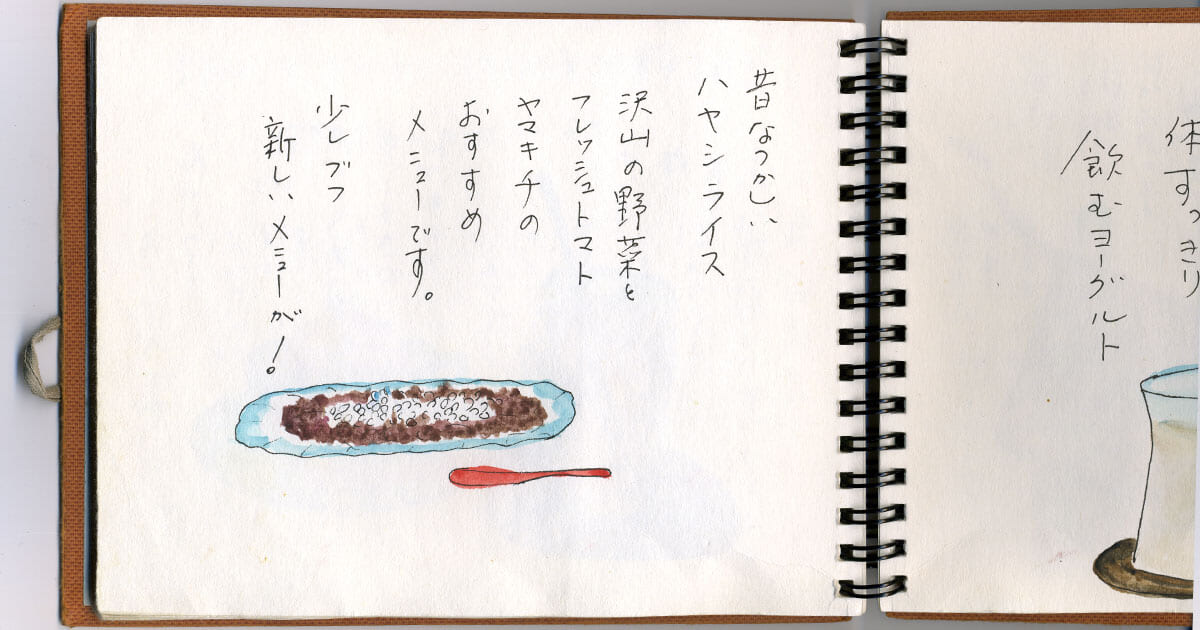 体すっきり
飲むヨーグルト
昔なつかしい
ハヤシライス
沢山の野菜と
フレッシュトマト
ヤマキチの
おすすめ
メニューです。
少しづつ
新しいメニューが！